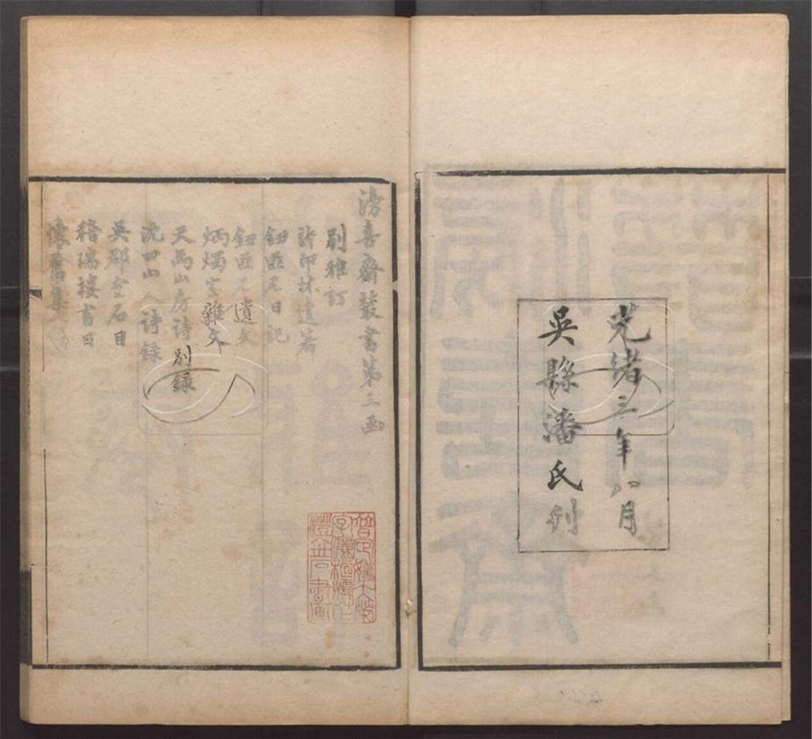 光緒三年八月
吳縣潘氏刊
滂喜齋叢書第三函
別雅訂
許印林遺著
鈕匪石日記
鈕匪石遺文
炳燭室雜文
天馬山房詩別錄
沈四山人詩錄
吳郡金石目
稽瑞樓書目
懷舊集